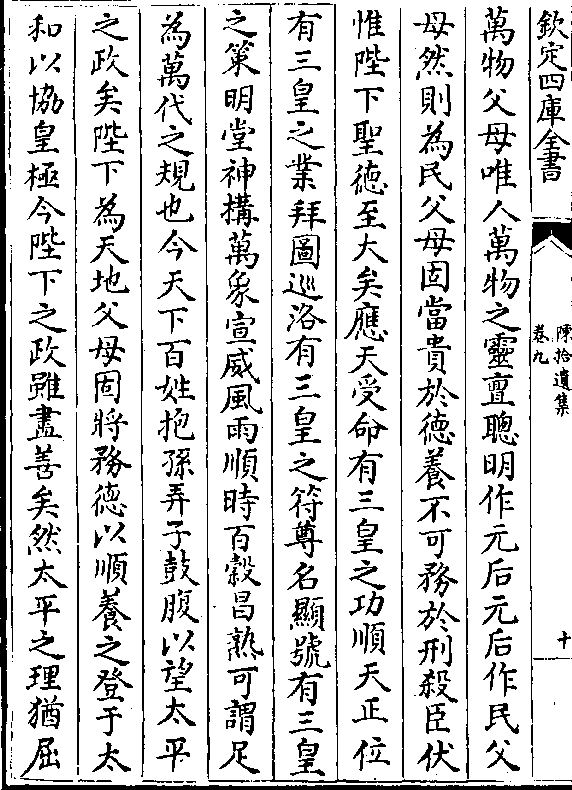 欽定四庫全書
陳拾遺集
卷九
十
萬物父母唯人萬物之靈亶聰明作元后元后作民父
母然則為民父母固當貴於德養不可務於刑殺臣伏
惟陛下聖德至大矣應天受命有三皇之功順天正位
有三皇之業拜圖巡洛有三皇之符尊名顯號有三皇
之策明堂神構萬象宣威風雨順時百穀昌熟可謂足
為萬代之規也今天下百姓抱孫弄子鼓腹以望太平
之政矣陛下為天地父母固將務德以順養之登于太
和以協皇極今陛下之政雖盡善矣然太平之理猶屈